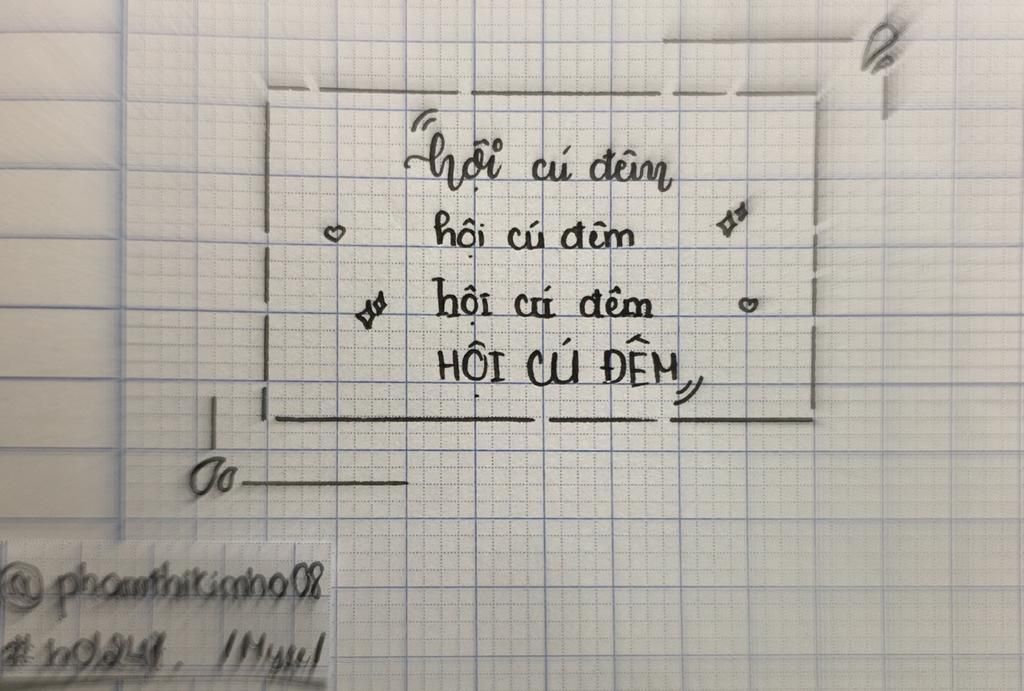 hội cú đêm
hội cú đêm
hội cú đêm
HỘI CÚ ĐÊM
@phamthikimho08